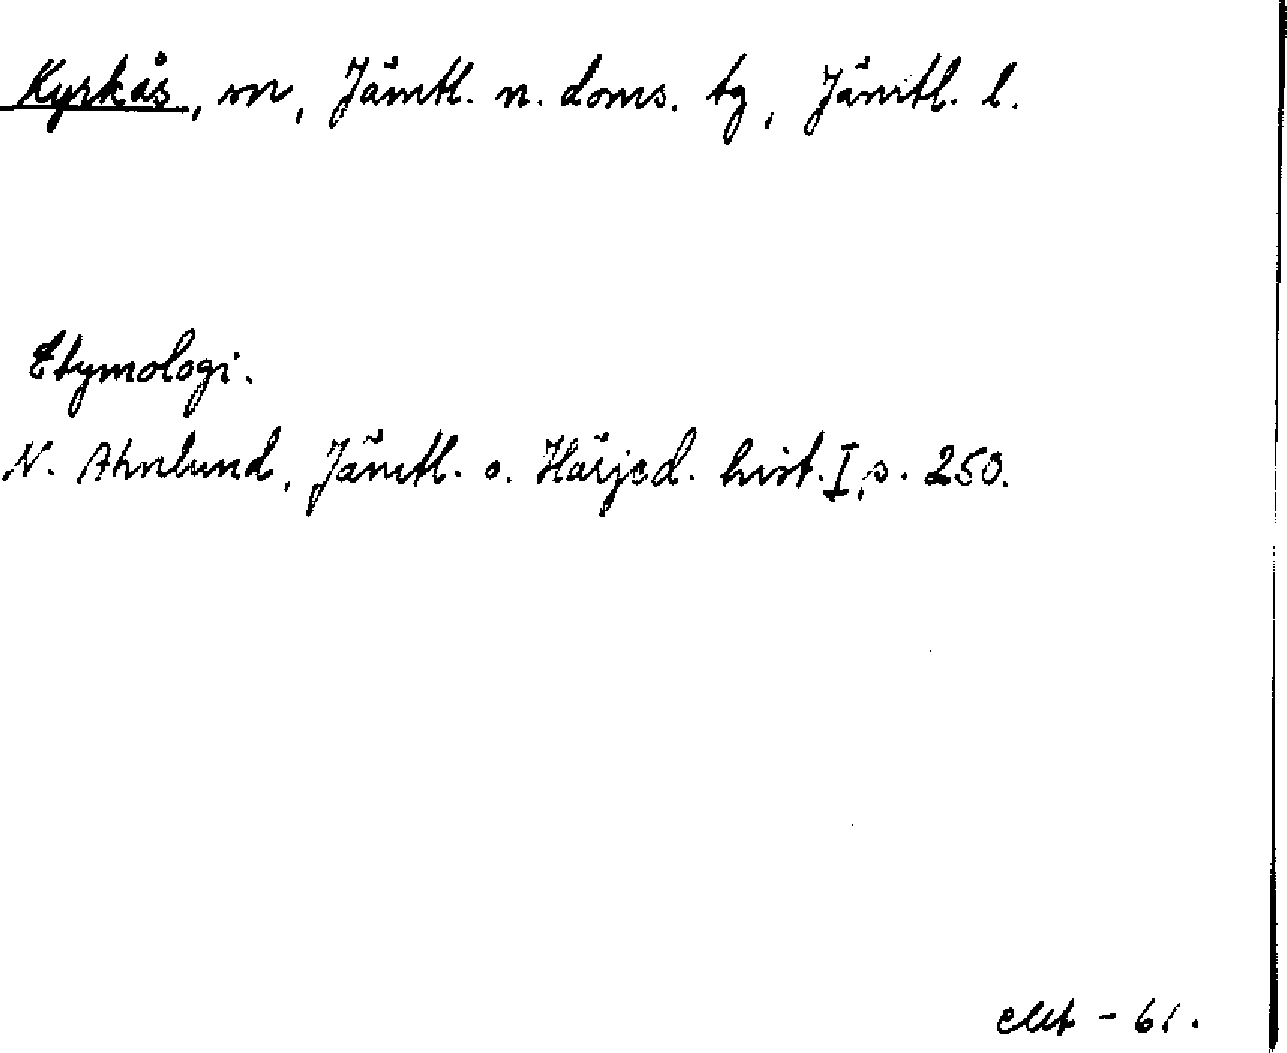 Kyrkås, sn, Jämtl. n. doms. tg, Jämtl. l.
Etymologi.
N. Ahnlund, Jämtl. o. Härjed. hist. I, s. 250.
- 61.